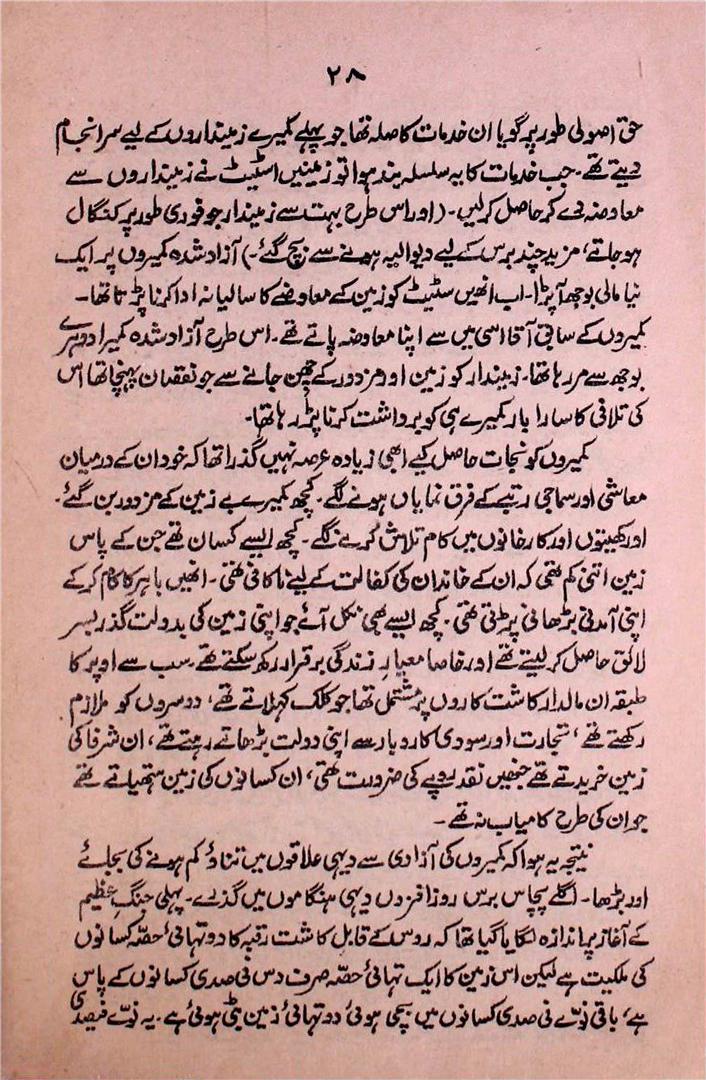 ۲۸
حق اصولی طور پر گویا ان خدمات کا صلہ تھا جو پہلے کمیرے زمینداروں کے لیے سر انجام
دیتے تھے۔ جب خدمات کا یہ سلسلہ بند ہوا تو زمینیں اسٹیٹ نے زمینداروں سے
معاوضہ دے کر حاصل کرلیں۔ (اور اس طرح بہت سے زمیندار جو فوری طور پر کنگال
ہو جاتے، مزید چند برس کے لیے دیوالیہ ہونے سے بچ گئے۔) آزاد شدہ کمیروں پر ایک
نیا مالی بوجھ آپڑا۔ اب انھیں سٹیٹ کو زمین کے معاوضے کا سالیانہ ادا کرنا پڑتا تھا۔
کمیروں کے سابق آقا اسی میں سے اپنا معاوضہ پاتے تھے۔ اس طرح آزاد شدہ کمیرا دوہرے
بوجھ سے مر رہا تھا۔ زمیندار کو زمین اور مزدور کے چھن جانے سے جو نقصان پہنچا تھا اس
کی تلافی کا سارا بار کمیرے ہی کو برداشت کرنا پڑ رہا تھا۔
کمیروں کو نجات حاصل کیے ابھی زیادہ عرصہ نہیں گذرا تھا کہ خود ان کے درمیان
معاشی اور سماجی رتبے کے فرق نمایاں ہونے لگے۔ کچھ کمیرے بے زمین کے مزدور بن گئے۔
اور کھیتوں اور کارخانوں میں کام تلاش کرنے لگے۔ کچھ ایسے کسان تھے جن کے پاس
زمین اتنی کم تھی کہ ان کے خاندان کی کفالت کے لیے ناکافی تھی۔ انھیں باہر کا کام کر کے
اپنی آمدنی بڑھانی پڑتی تھی۔ کچھ ایسے بھی نکل آئے جو اپنی زمین کی بدولت گذر بسر
لائق حاصل کر لیتے تھے اور خاصا معیارِ زندگی برقرار رکھ سکتے تھے۔ سب سے اوپر کا
طبقہ ان مالدار کاشت کاروں پر مشتمل تھا جو کلک کہلاتے تھے، دوسروں کو ملازم
رکھتے تھے، تجارت اور سودی کاروبار سے اپنی دولت بڑھاتے رہتے تھے، ان شرفا کی
زمین خریدتے تھے جنھیں نقد روپے کی ضرورت تھی، ان کسانوں کی زمین ہتھیاتے تھے
جو ان کی طرح کامیاب نہ تھے۔
نتیجہ یہ ہوا کہ کمیروں کی آزادی سے دیہی علاقوں میں تناؤ کم ہونے کی بجائے
اور بڑھا۔ اگلے پچاس برس روز افزوں دیہی ہنگاموں میں گذرے۔ پہلی جنگِ عظیم
کے آغاز پر اندازہ لگایا گیا تھا کہ روس کے قابل کاشت رقبہ کا دو تہائی حصّہ کسانوں
کی ملکیت ہے لیکن اس زمین کا ایک تہائی حصّہ صرف دس فی صدی کسانوں کے پاس
ہے، باقی نوّے فی صدی کسانوں میں بچی ہوئی دو تہائی زمین بٹی ہوئی ہے۔ یہ نوّے فیصدی